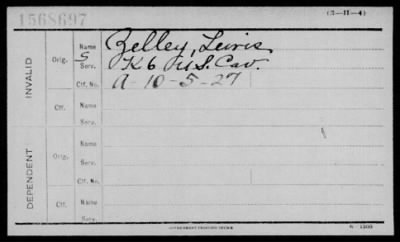 1568697
(3-11-4)
INVALID
Orig.
Name Zelley, Lewis
S
Serv. K 6 U.S. Cav.
Ctf. No. A-10-5-27
Ctf.
Name
Serv.
DEPENDENT
Orig.
Name
Serv.
Ctf. No.
Ctf.
Name
Serv.
GOVERNMENT PRINTING OFFICE